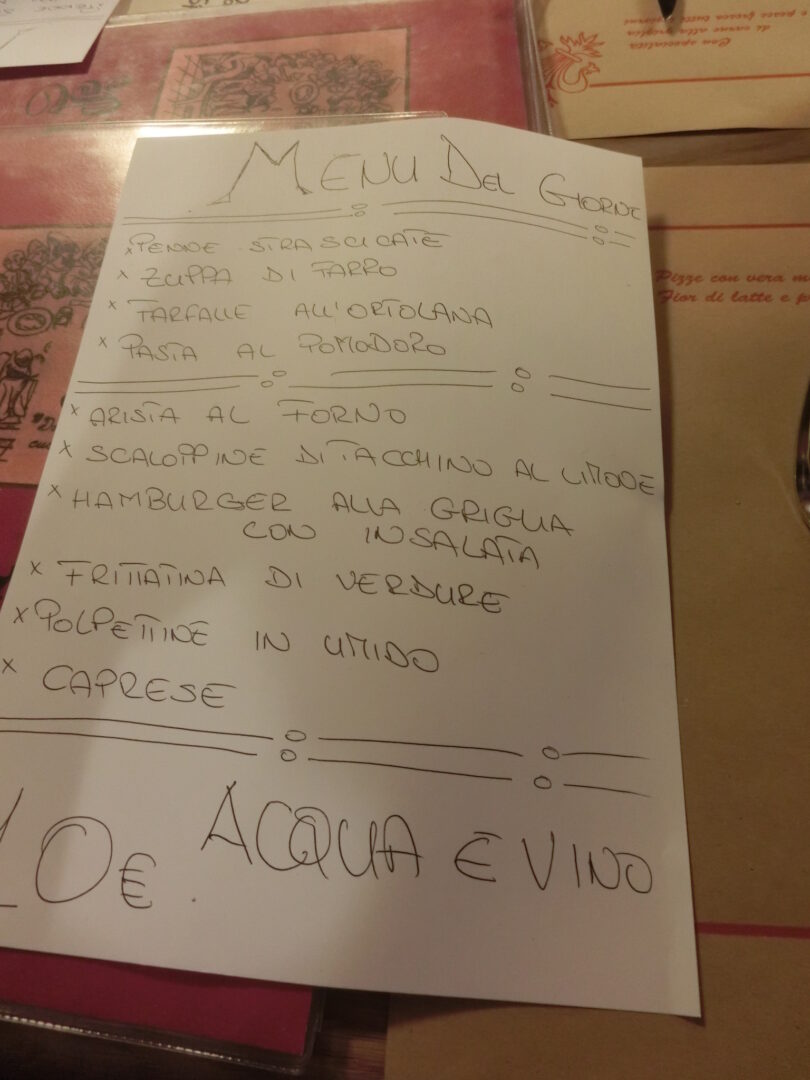 MENU DEL GIORNO
x PENNE STRASCICATE
x ZUPPA DI FARRO
x FARFALLE ALL'ORTOLANA
x PASTA AL POMODORO
x ARISTA AL FORNO
x SCALOPPINE DI TACCHINO AL LIMONE
x HAMBURGER ALLA GRIGLIA
CON INSALATA
x FRITTATINA DI VERDURE
x POLPETTINE IN UMIDO
x CAPRESE
10€. ACQUA E VINO
Con specialità
di carne alla griglia
e pesce fresco tutti i giorni
Pizze con vera
Fior di latte e